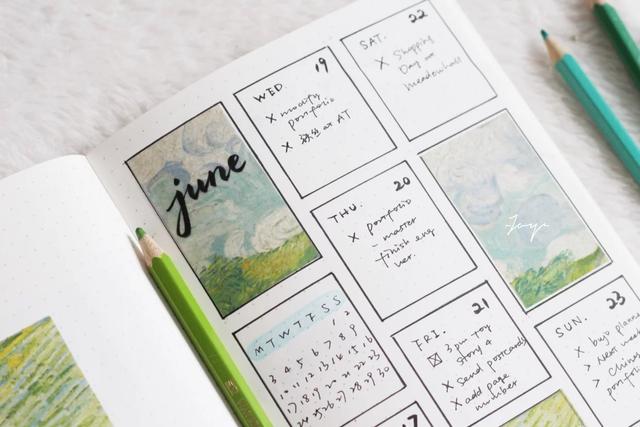 june
M T W T F S S
1 2
3 4 5 6 7 8 9
10 11 12 13 14 15 16
17 18 19 20 21 22 23
24 25 26 27 28 29 30
WED. 19
x modify
portfolio
x at AT
THU. 20
x portfolio
- master
finish eng
ver.
FRI. 21
☒ 3pm Toy
story 4
x send postcards
x add page
number
SAT. 22
x Shopping
Day
meadowhall
SUN. 23
x bujo plann
> Next wee
> Chine
portfo
17